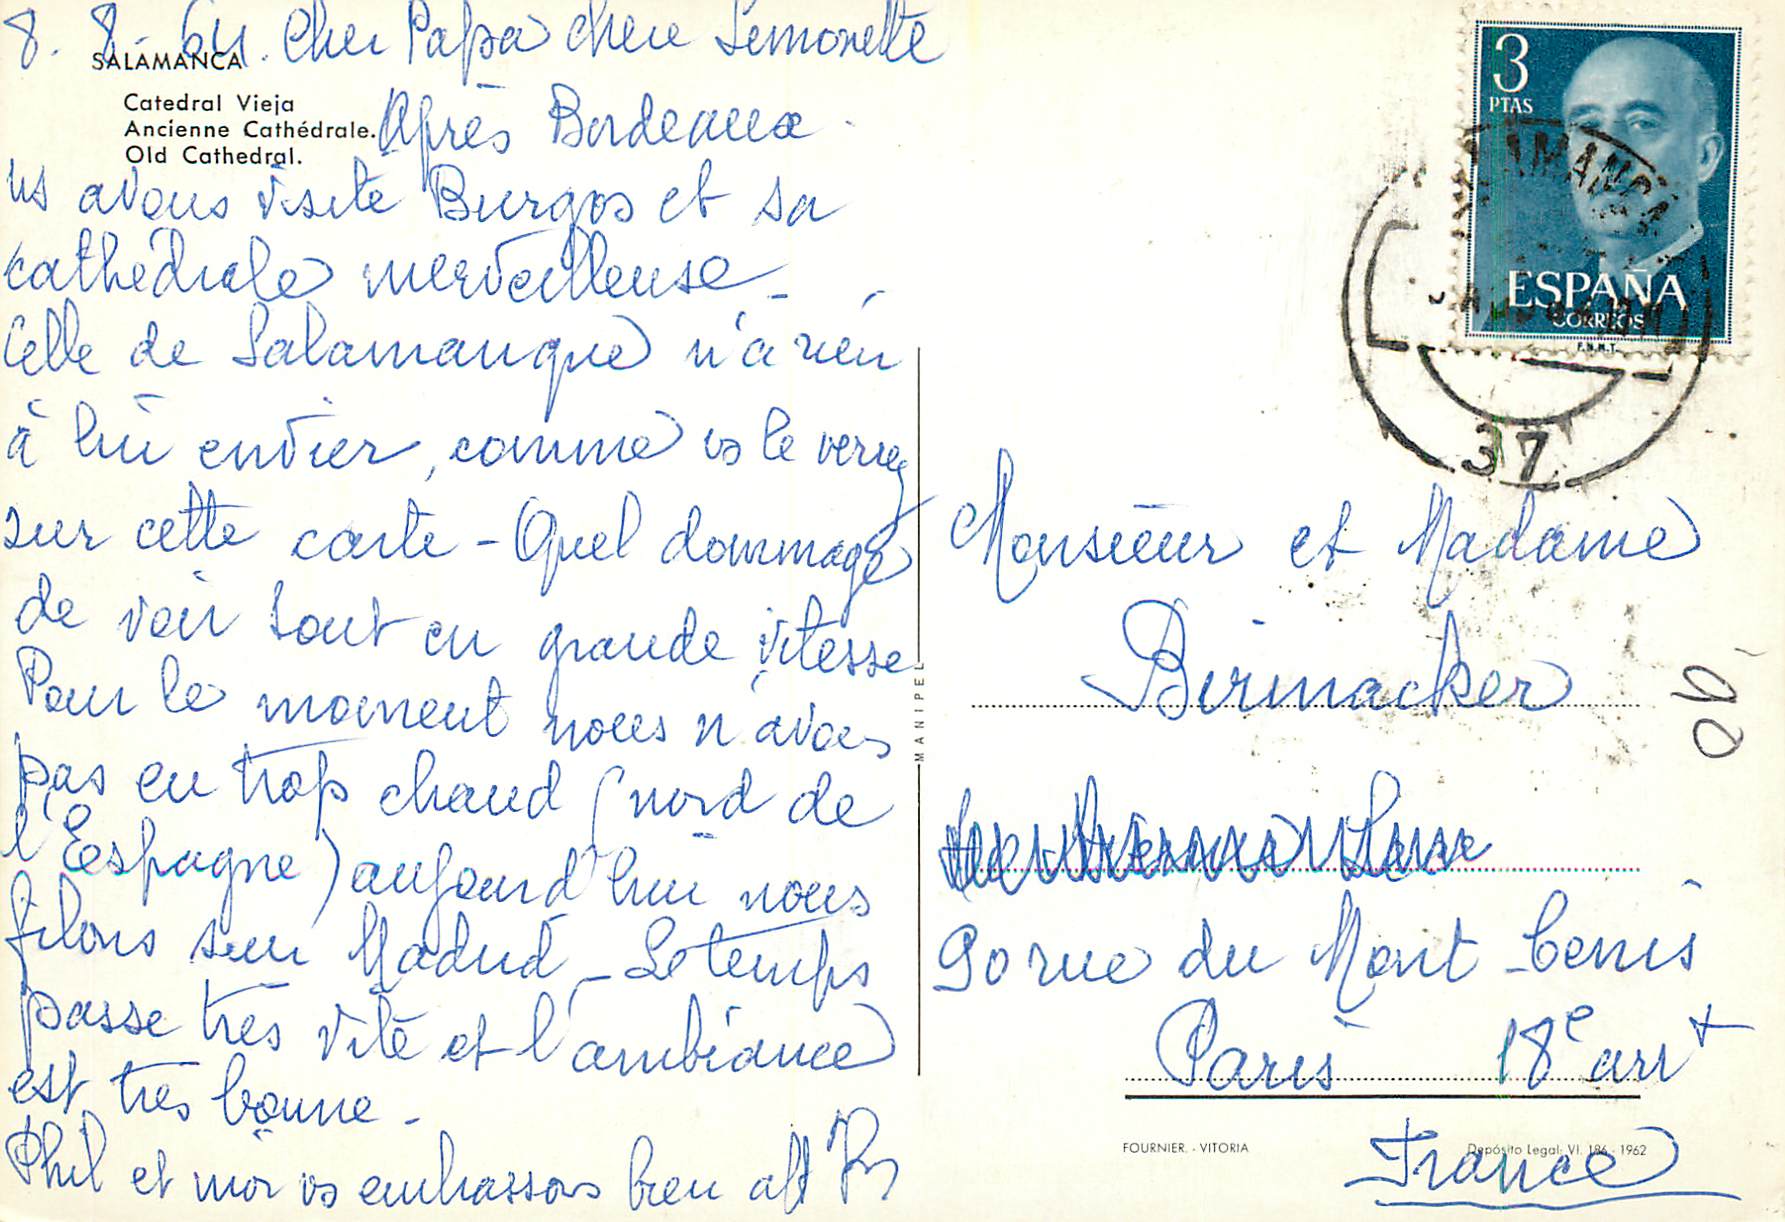 8. 8. 64. Cher Papa chere Simonette
SALAMANCA
Catedral Vieja
Ancienne Cathédrale.
Old Cathedral.
Après Bordeaux
ns avons visité Burgos et sa
cathédrale merveilleuse -
Celle de Salamanque n'a rien
à lui envier, comme vs le verrez
sur cette carte - Quel dommage
de voir tout en grande vitesse
Pour le moment nous n'avons
pas eu trop chaud (nord de
l'Espagne) aujourd'hui nous
filons sur Madrid - Le temps
passe très vite et l'ambiance
est très bonne -
Phil et moi vs embrassons bien aff
MANIPEL
3
PTAS
ESPAÑA
CORREOS
F.N.M.T.
SALAMANCA
37
Monsieur et Madame
Birmacker
90 rue du Mont Cenis
Paris 18e arrt
France
FOURNIER. - VITORIA
Depósito Legal: VI. 186 - 1962